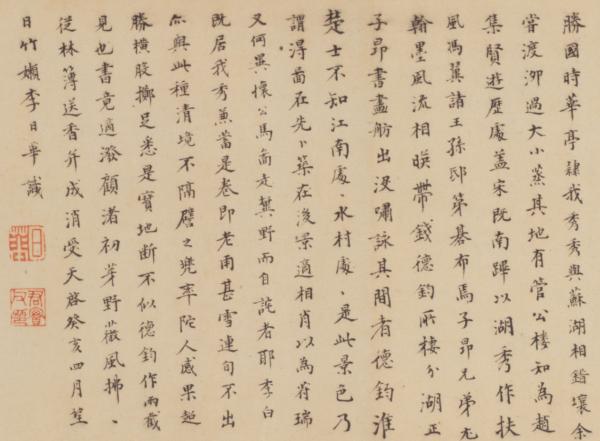 勝國時華亭隸我秀秀與蘇湖相錯壤余
嘗渡泖過大小蒸其地有管公樓知為趙
集賢遊歷處蓋宋既南蹕以湖秀作扶
風馮翼諸王孫邸第碁布焉子昂兄弟尤
翰墨風流相暎帶錢德鈞所棲分湖正
子昂書畫舫出沒嘯詠其間者德鈞淮
楚士不知江南處、水村處、是此景色乃
謂得啚在先卜築在後景適相肖以為符瑞
又何異懷公馬啚走冀野而自詫者耶李白
既居我秀兼蓄是卷即老雨甚雪連旬不出
亦與此種清境不隔譬之兜率陀人感果超
勝橫股擲足悉是寶地斷不似德鈞作兩截
見也書竟適潑顧渚初芽野薇風拂、
從林薄送香并成消受天啓癸亥四月望
日竹嬾李日華識
日華